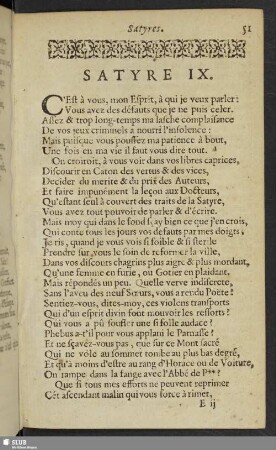 Satyres. 51
SATYRE IX.
C'Est à vous, mon Esprit, à qui je veux parler:
Vous avez des défauts que je ne puis celer.
Assez & trop long-temps ma lasche complaisance
De vos jeux criminels a nourri l'insolence:
Mais puisque vous poussez ma patience à bout,
Une fois en ma vie il faut vous dire tout.
On croiroit, à vous voir dans vos libres caprices,
Discourir en Caton des vertus & des vices,
Decider du merite & du prix des Auteurs,
Et faire impunément la leçon aux Docteurs,
Qu'estant seul à couvert des traits de la Satyre,
Vous avez tout pouvoir de parler & d'écrire.
Mais moy qui dans le fond sçay bien ce que j'en crois,
Qui conte tous les jours vos defauts par mes doigts,
Je ris, quand je vous vois si foible & si sterile
Prendre sur vous le soin de reformer la ville,
Dans vos discours chagrins plus aigre & plus mordant,
Qu'une femme en furie, ou Gotier en plaidant.
Mais répondés un peu. Quelle verve indiscrete,
Sans l'aveu des neuf Sœurs, vous a rendu Poëte?
Sentiez-vous, dites-moy, ces violens transports
Qui d'un esprit divin font mouvoir les ressorts?
Qui vous a pû souffler une si folle audace?
Phebus a-t'il pour vous applani le Parnasse?
Et ne sçavéz-vous pas, que sur ce Mont sacré
Qui ne vôle au sommet tombe au plus bas degré,
Et qu'à moins d'estre au rang d'Horace ou de Voiture,
On rampe dans la fange avec l'Abbé de P**?
Que si tous mes efforts ne peuvent reprimer
Cét ascendant malin qui vous force à rimer,
E ij
SLUB